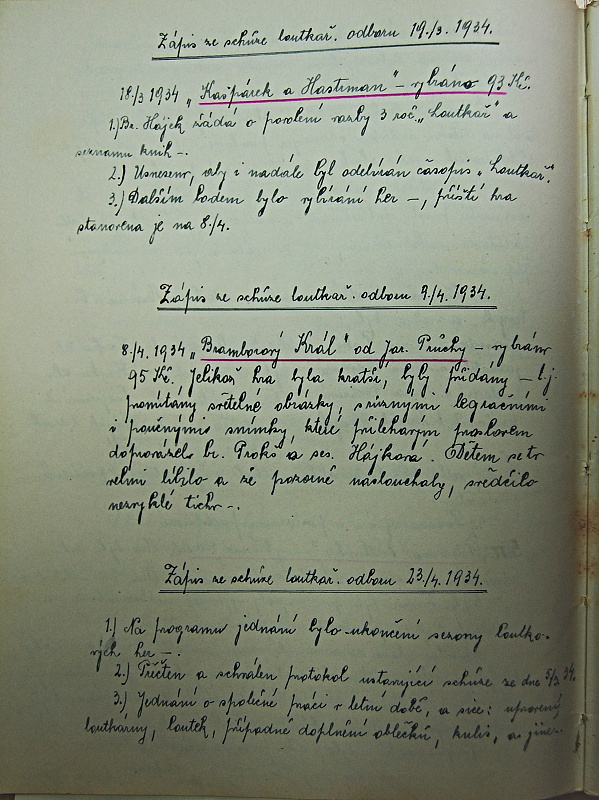 Zápis ze schůze loutkař. odboru 19./3. 1934.
18./3 1934 „Kašpárek a Hastrman" – vybráno 93 Kč.
1.) Br. Hájek žádá o povolení vazby 3 roč. „Loutkář" a
seznamu knih –.
2.) Usneseno, aby i nadále byl odebírán časopis „Loutkář".
3.) Dalším bodem bylo vybírání her –, příští hra
stanovena je na 8./4.
Zápis ze schůze loutkař. odboru 9./4. 1934.
8./4. 1934 „Bramborový Král" od Jar. Průchy – vybráno
95 Kč. Jelikož hra byla kratší, byly přidány – t.j.
promítány světelné obrázky, s různými legračními
i poučnými snímky, které přiléhavým proslovem
doprovázel br. Prokš a ses. Hájková. Dětem se to
velmi líbilo a že pozorně naslouchaly, svědčilo
nezvyklé ticho –.
Zápis ze schůze loutkař. odboru 23./4. 1934.
1.) Na programu jednání bylo ukončení sezony loutko-
vých her –.
2.) Přečten a schválen protokol ustavující schůze ze dne 5/3. 34.
3.) Jednání o společné práci v letní době, a sice: upravení
loutkárny, loutek, případné doplnění oblečků, kulis, a jiné –.